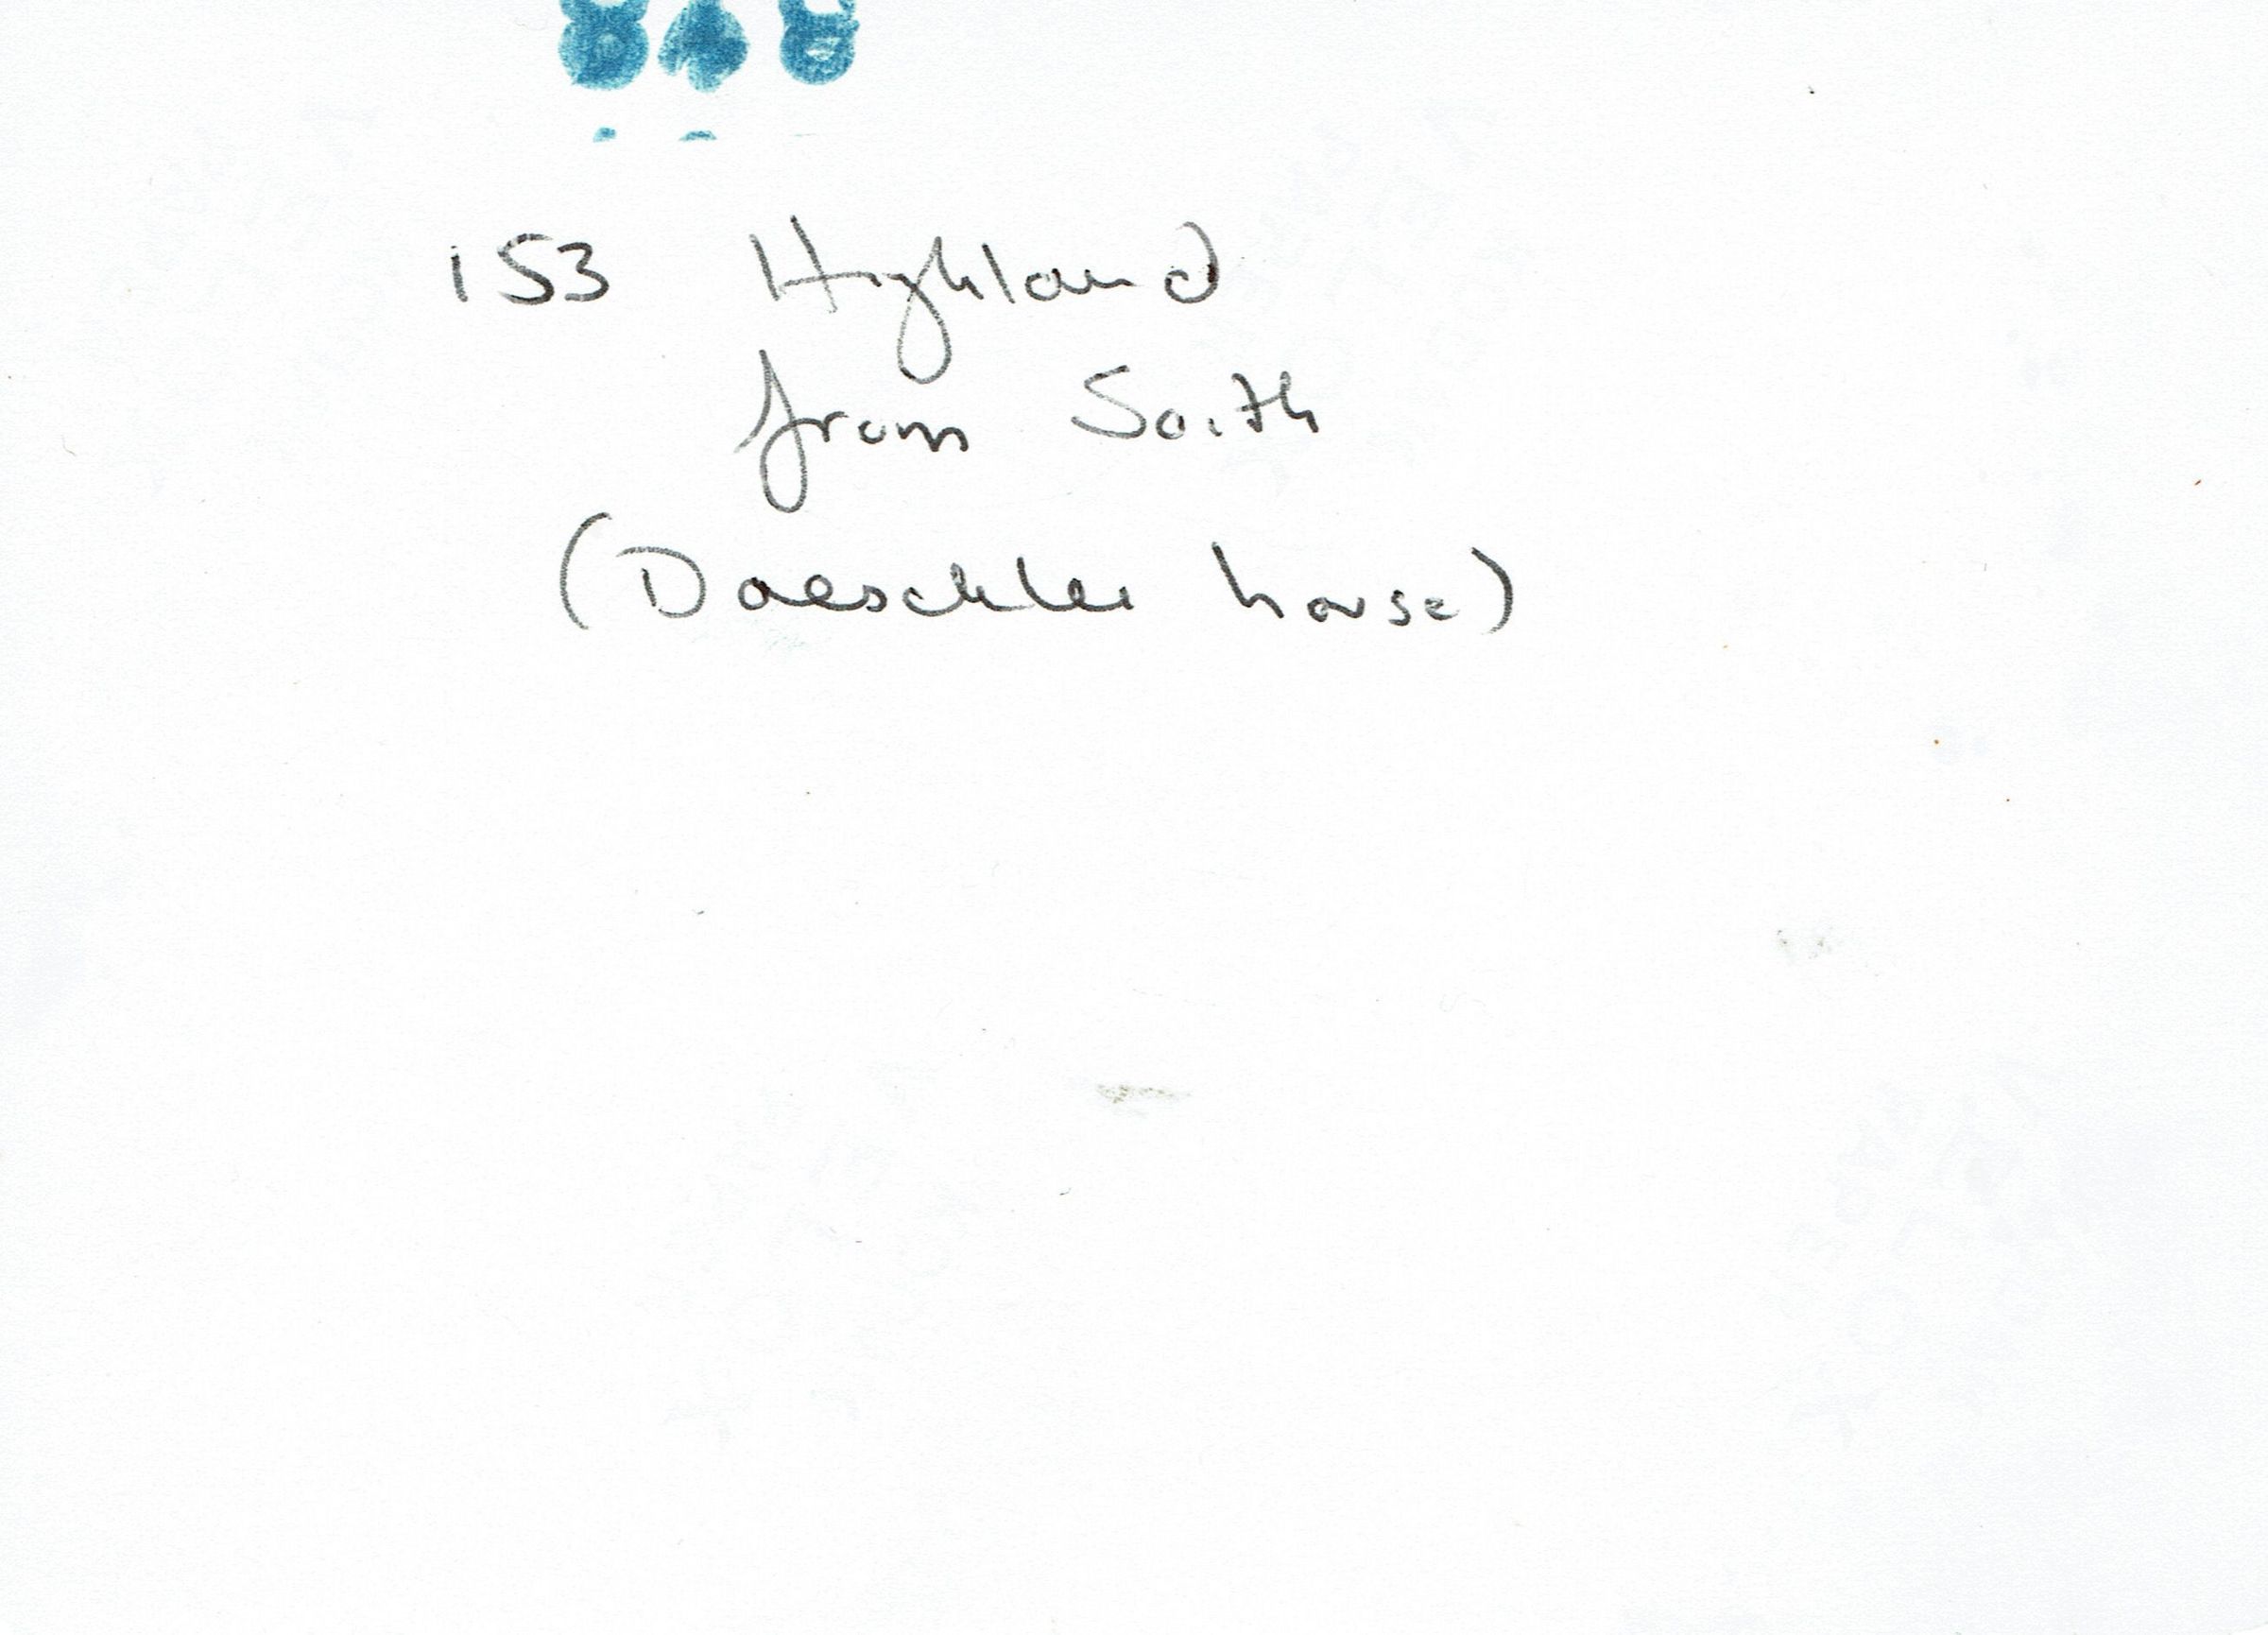 153 Highland
from South
(Daeschler house)